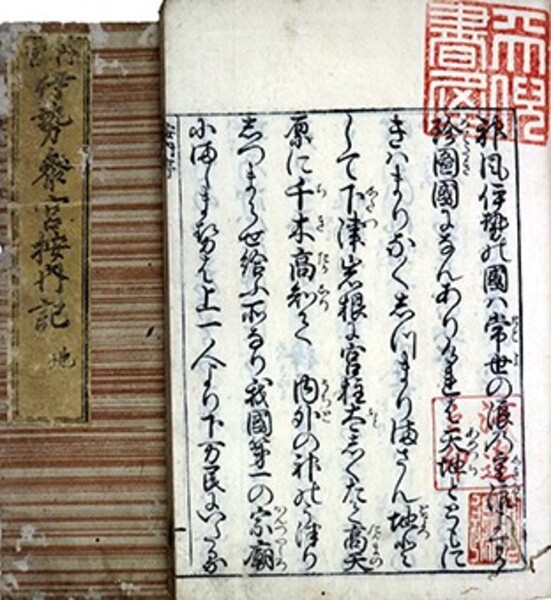 伊勢参宮按内記 地
神風伊勢の國ハ常世の浪の重浪よする
國になんあり天地とともに
きハまりなくしつまりまさん地と
して下津岩根に宮柱太しくたて高天
原に千木高知て 内外の神の
しつまらせ給ふ所なり我國第一の宗廟
にましませは上一人より下万民にいたる